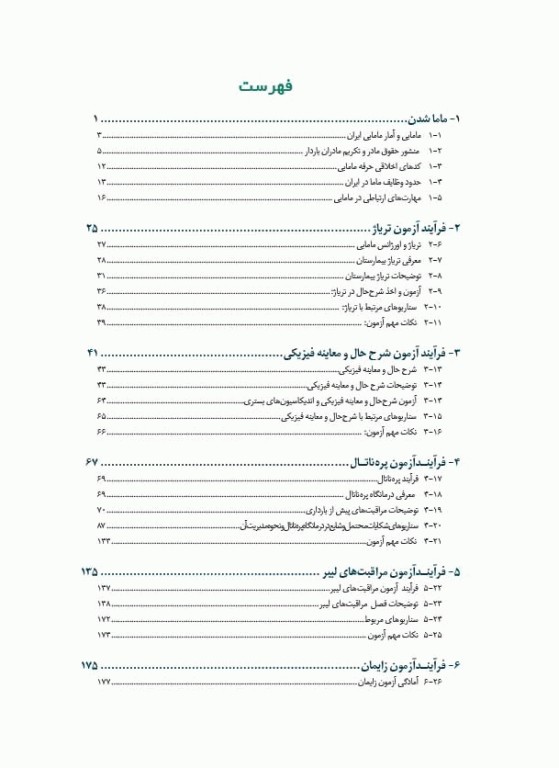 فهرست
۱- ماما شدن ........ ۱
۱-۱ مامایی و آمار مامایی ایران ........ ۳
۱-۲ منشور حقوق مادر و تکریم مادران باردار ........ ۵
۱-۳ کدهای اخلاقی حرفه مامایی ........ ۱۲
۱-۴ حدود وظایف ماما در ایران ........ ۱۳
۱-۵ مهارت‌های ارتباطی در مامایی ........ ۱۶
۲- فرآیند آزمون تریاژ ........ ۲۵
۲-۶ تریاژ و اورژانس مامایی ........ ۲۷
۲-۷ معرفی تریاژ بیمارستان ........ ۲۸
۲-۸ توضیحات تریاژ بیمارستان ........ ۳۱
۲-۹ آزمون و اخذ شرح‌حال در تریاژ: ........ ۳۶
۲-۱۰ سناریوهای مرتبط با تریاژ: ........ ۳۸
۲-۱۱ نکات مهم آزمون: ........ ۳۹
۳- فرآیند آزمون شرح حال و معاینه فیزیکی ........ ۴۱
۳-۱۳ شرح حال و معاینه فیزیکی ........ ۴۳
۳-۱۴ توضیحات شرح حال و معاینه فیزیکی ........ ۴۳
۳-۱۴ آزمون شرح‌حال و معاینه فیزیکی و اندیکاسیون‌های بستری ........ ۶۴
۳-۱۵ سناریوهای مرتبط با شرح‌حال و معاینه فیزیکی ........ ۶۵
۳-۱۶ نکات مهم آزمون: ........ ۶۶
۴- فرآیند آزمون پره‌ناتال ........ ۶۷
۴-۱۷ فرآیند پره‌ناتال ........ ۶۹
۴-۱۸ معرفی درمانگاه پره‌ناتال ........ ۶۹
۴-۱۹ توضیحات مراقبت‌های پیش از بارداری ........ ۷۰
۴-۲۰ سناریوهای شکایات محتمل و شایع‌تر در درمانگاه پره‌ناتال و نحوه مدیریت آن ........ ۸۷
۴-۲۱ نکات مهم آزمون ........ ۱۳۳
۵- فرآیند آزمون مراقبت‌های لیبر ........ ۱۳۵
۵-۲۲ فرآیند آزمون مراقبت‌های لیبر ........ ۱۳۷
۵-۲۳ توضیحات فصل مراقبت‌های لیبر ........ ۱۳۸
۵-۲۴ سناریوهای مربوط ........ ۱۷۲
۵-۲۵ نکات مهم آزمون ........ ۱۷۳
۶- فرآیند آزمون زایمان ........ ۱۷۵
۶-۲۶ آمادگی آزمون زایمان ........ ۱۷۷